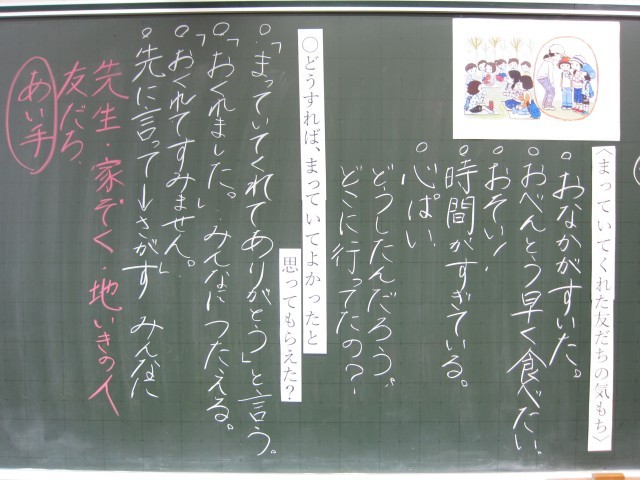 〈まっていてくれた友だちの気もち〉
。おなかがすいた。
。おべんとう早く食べたい
。おそい!
。時間がすぎている。
。心ぱい
どうしたんだろう。
どこに行ってたの?
○どうすれば、まっていてよかったと
思ってもらえた?
。「まっていてくれてありがとう」と言う。
。「おくれました。」みんなにつたえる。
。「おくれてすみません。」
。先に言って→さがす みんなに
先生・家ぞく・地いきの人
友だち、
あい手